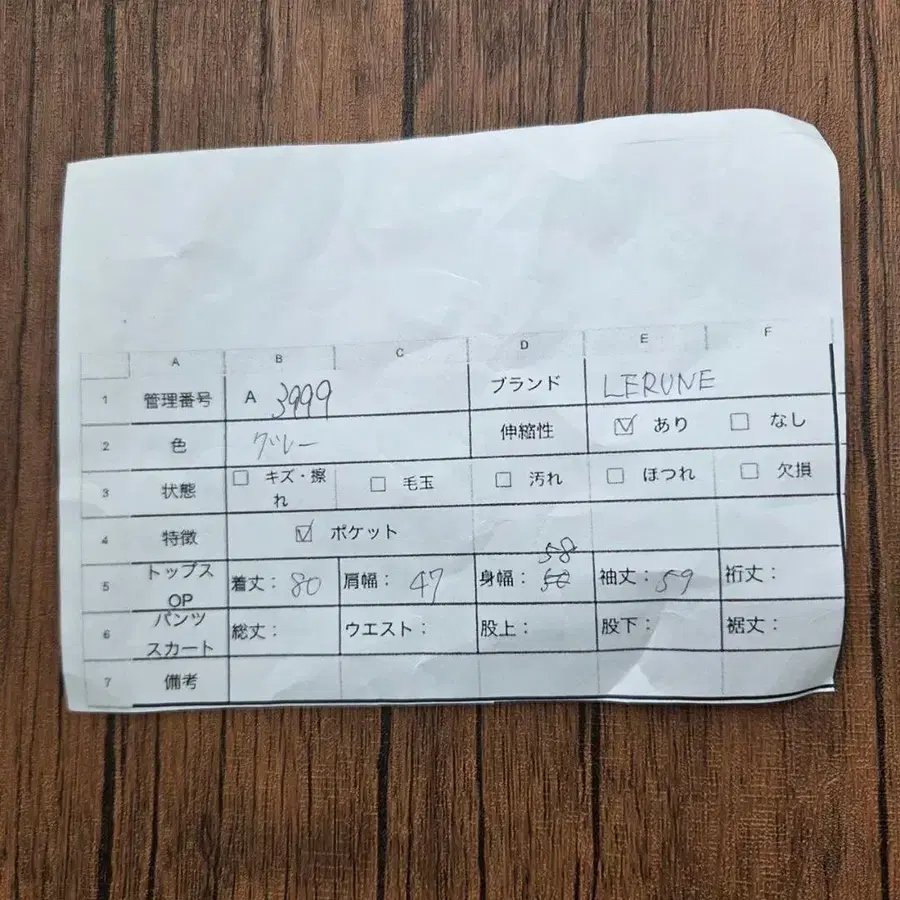 A B C D E F
1 管理番号 A 3999 ブランド LERUNE
2 色 グレー 伸縮性 ☑ あり ☐ なし
3 状態 ☐ キズ・擦れ ☐ 毛玉 ☐ 汚れ ☐ ほつれ ☐ 欠損
4 特徴 ☑ ポケット
58
5 トップス OP 着丈: 80 肩幅: 47 身幅: 50 袖丈: 59 裄丈:
6 パンツ スカート 総丈: ウエスト: 股上: 股下: 裾丈:
7 備考